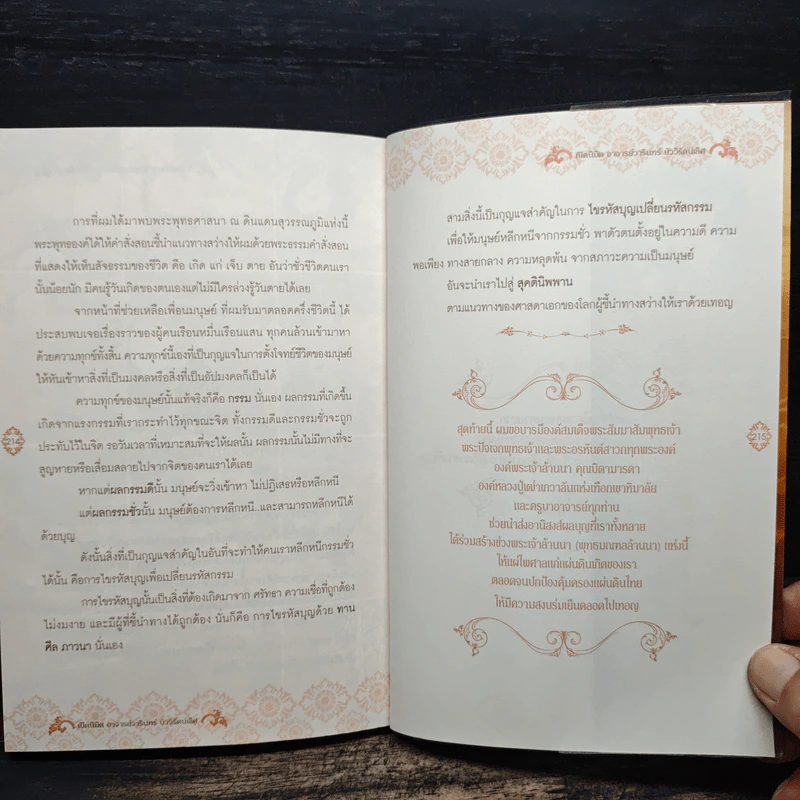 การที่ผมได้มาพบพระพุทธศาสนา ณ ดินแดนสุวรรณภูมิแห่งนี้
พระพุทธองค์ได้ให้คำสั่งสอนชี้นำแนวทางสว่างให้ผมด้วยพระธรรมคำสั่งสอน
ที่แสดงให้เห็นสัจธรรมของชีวิต คือ เกิด แก่ เจ็บ ตาย อันว่าชั่วชีวิตคนเรา
นั้นน้อยนัก มีคนรู้วันเกิดของตนเองแต่ไม่มีใครล่วงรู้วันตายได้เลย
จากหน้าที่ช่วยเหลือเพื่อนมนุษย์ ที่ผมรับมาตลอดครึ่งชีวิตนี้ ได้
ประสบพบเจอเรื่องราวของผู้คนเรือนหมื่นเรือนแสน ทุกคนล้วนเข้ามาหา
ด้วยความทุกข์ทั้งสิ้น ความทุกข์นี้เองที่เป็นกุญแจในการตั้งโจทย์ชีวิตของมนุษย์
ให้หันเข้าหาสิ่งที่เป็นมงคลหรือสิ่งที่เป็นอัปมงคลก็เป็นได้
ความทุกข์ของมนุษย์นั้นแท้จริงก็คือ กรรม นั่นเอง ผลกรรมที่เกิดขึ้น
เกิดจากแรงกรรมที่เรากระทำไว้ทุกขณะจิต ทั้งกรรมดีและกรรมชั่วจะถูก
ประทับไว้ในจิต รอวันเวลาที่เหมาะสมที่จะให้ผลนั้น ผลกรรมนั้นไม่มีทางที่จะ
สูญหายหรือเสื่อมสลายไปจากจิตของคนเราได้เลย
หากแต่ผลกรรมดีนั้น มนุษย์จะวิ่งเข้าหา ไม่ปฏิเสธหรือหลีกหนี
แต่ผลกรรมชั่วนั้น มนุษย์ต้องการหลีกหนี..และสามารถหลีกหนีได้
ด้วยบุญ
ดังนั้นสิ่งที่เป็นกุญแจสำคัญในอันที่จะทำให้คนเราหลีกหนีกรรมชั่ว
ได้นั้น คือการไขรหัสบุญเพื่อเปลี่ยนรหัสกรรม
การไขรหัสบุญนั้นเป็นสิ่งที่ต้องเกิดมาจาก ศรัทธา ความเชื่อที่ถูกต้อง
ไม่งมงาย และมีผู้ที่ชี้นำทางได้ถูกต้อง นั่นก็คือ การไขรหัสบุญด้วย ทาน
ศีล ภาวนา นั่นเอง
214
เปิดนิมิต อาจารย์วารินทร์ บัววิรัตน์เลิศ
เปิดนิมิต อาจารย์วารินทร์ บัววิรัตน์เลิศ
สามสิ่งนี้เป็นกุญแจสำคัญในการ ไขรหัสบุญเปลี่ยนรหัสกรรม
เพื่อให้มนุษย์หลีกหนีจากกรรมชั่ว พาตัวตนตั้งอยู่ในความดี ความ
พอเพียง ทางสายกลาง ความหลุดพ้น จากสภาวะความเป็นมนุษย์
อันจะนำเราไปสู่ สุคตินิพพาน
ตามแนวทางของศาสดาเอกของโลกผู้ชี้นำทางสว่างให้เราด้วยเทอญ
สุดท้ายนี้ ผมขอบารมีองค์สมเด็จพระสัมมาสัมพุทธเจ้า
พระปัจเจกพุทธเจ้าและพระอรหันต์สาวกทุกพระองค์
องค์พระเจ้าล้านนา คุณบิดามารดา
องค์หลวงปู่เฒ่าเทวาลันแห่งเทือกเขาหิมาลัย
และครูบาอาจารย์ทุกท่าน
ช่วยนำส่งอานิสงส์ผลบุญที่เราทั้งหลาย
ได้ร่วมสร้างข่วงพระเจ้าล้านนา (พุทธมณฑลล้านนา) แห่งนี้
ให้แผ่ไพศาลแก่แผ่นดินเกิดของเรา
ตลอดจนปกป้องคุ้มครองแผ่นดินไทย
ให้มีความสงบร่มเย็นตลอดไปเทอญ
215